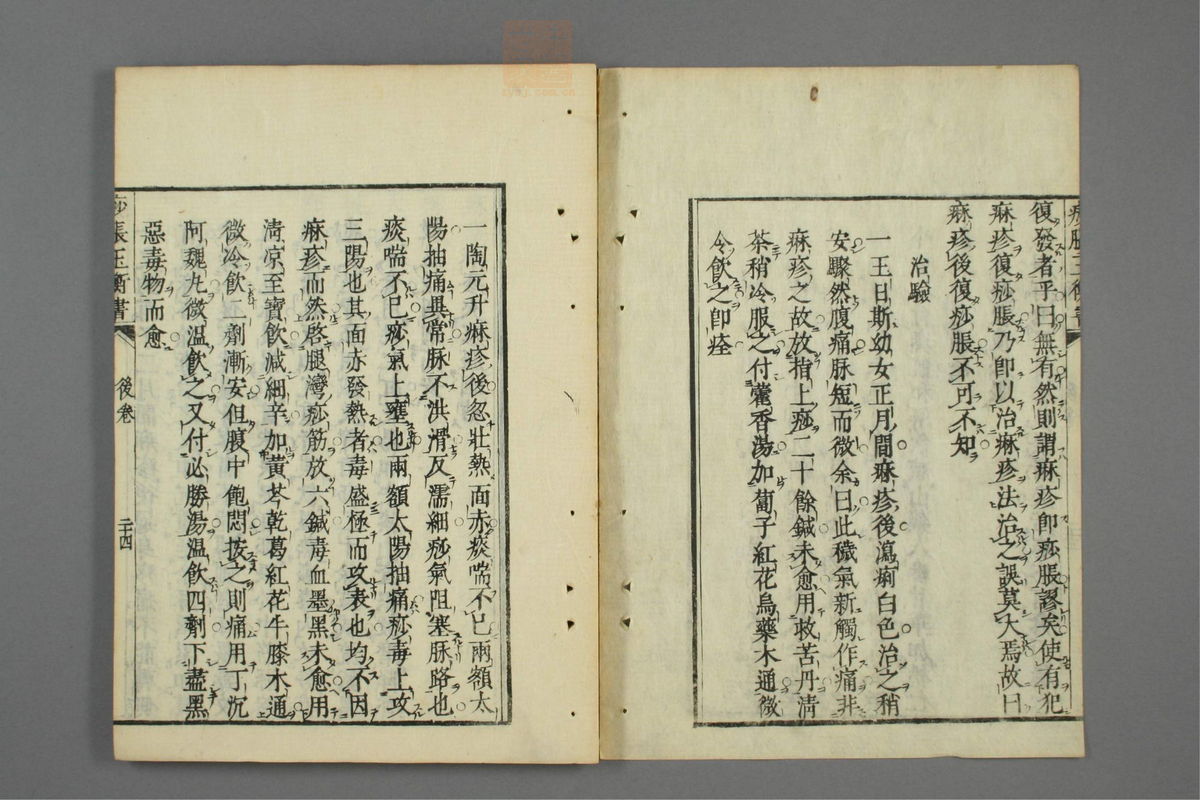 復發者乎曰無有然則謂痳疹卽痧脹謬矣使有犯
痳疹復痧脹乃卽以治痳疹法治之誤莫大焉故曰
痳疹後復痧脹不可不知
治驗
一王日斯幼女正月間痳疹後瀉痢白色治之稍
安驟然腹痛脉短而微余曰此穢氣新觸作痛非
痳疹之故放指上痧二十餘鍼未愈用救苦丹清
茶稍冷服之付藿香湯加蔔子紅花烏藥木通微
冷飲之卽痊
一陶元升痳疹後忽壯熱面赤痰喘不已兩額太
陽抽痛異常脉不洪滑反濡細痧氣阻塞脉路也
痰喘不已痧氣上壅也兩額太陽抽痛痧毒上攻
三陽也其面赤發熱者毒盛極而攻表也均不因
痳疹而然啓腿灣痧筋放六鍼毒血墨黑未愈用
淸凉至寶飲減細辛加黃芩乾葛紅花牛膝木通
微冷飲二劑漸安但腹中飽悶按之則痛用丁沉
阿魏丸微溫飲之又付必勝湯溫飲四劑下盡黑
惡毒物而愈
痧脹玉衡書 後卷 三十四